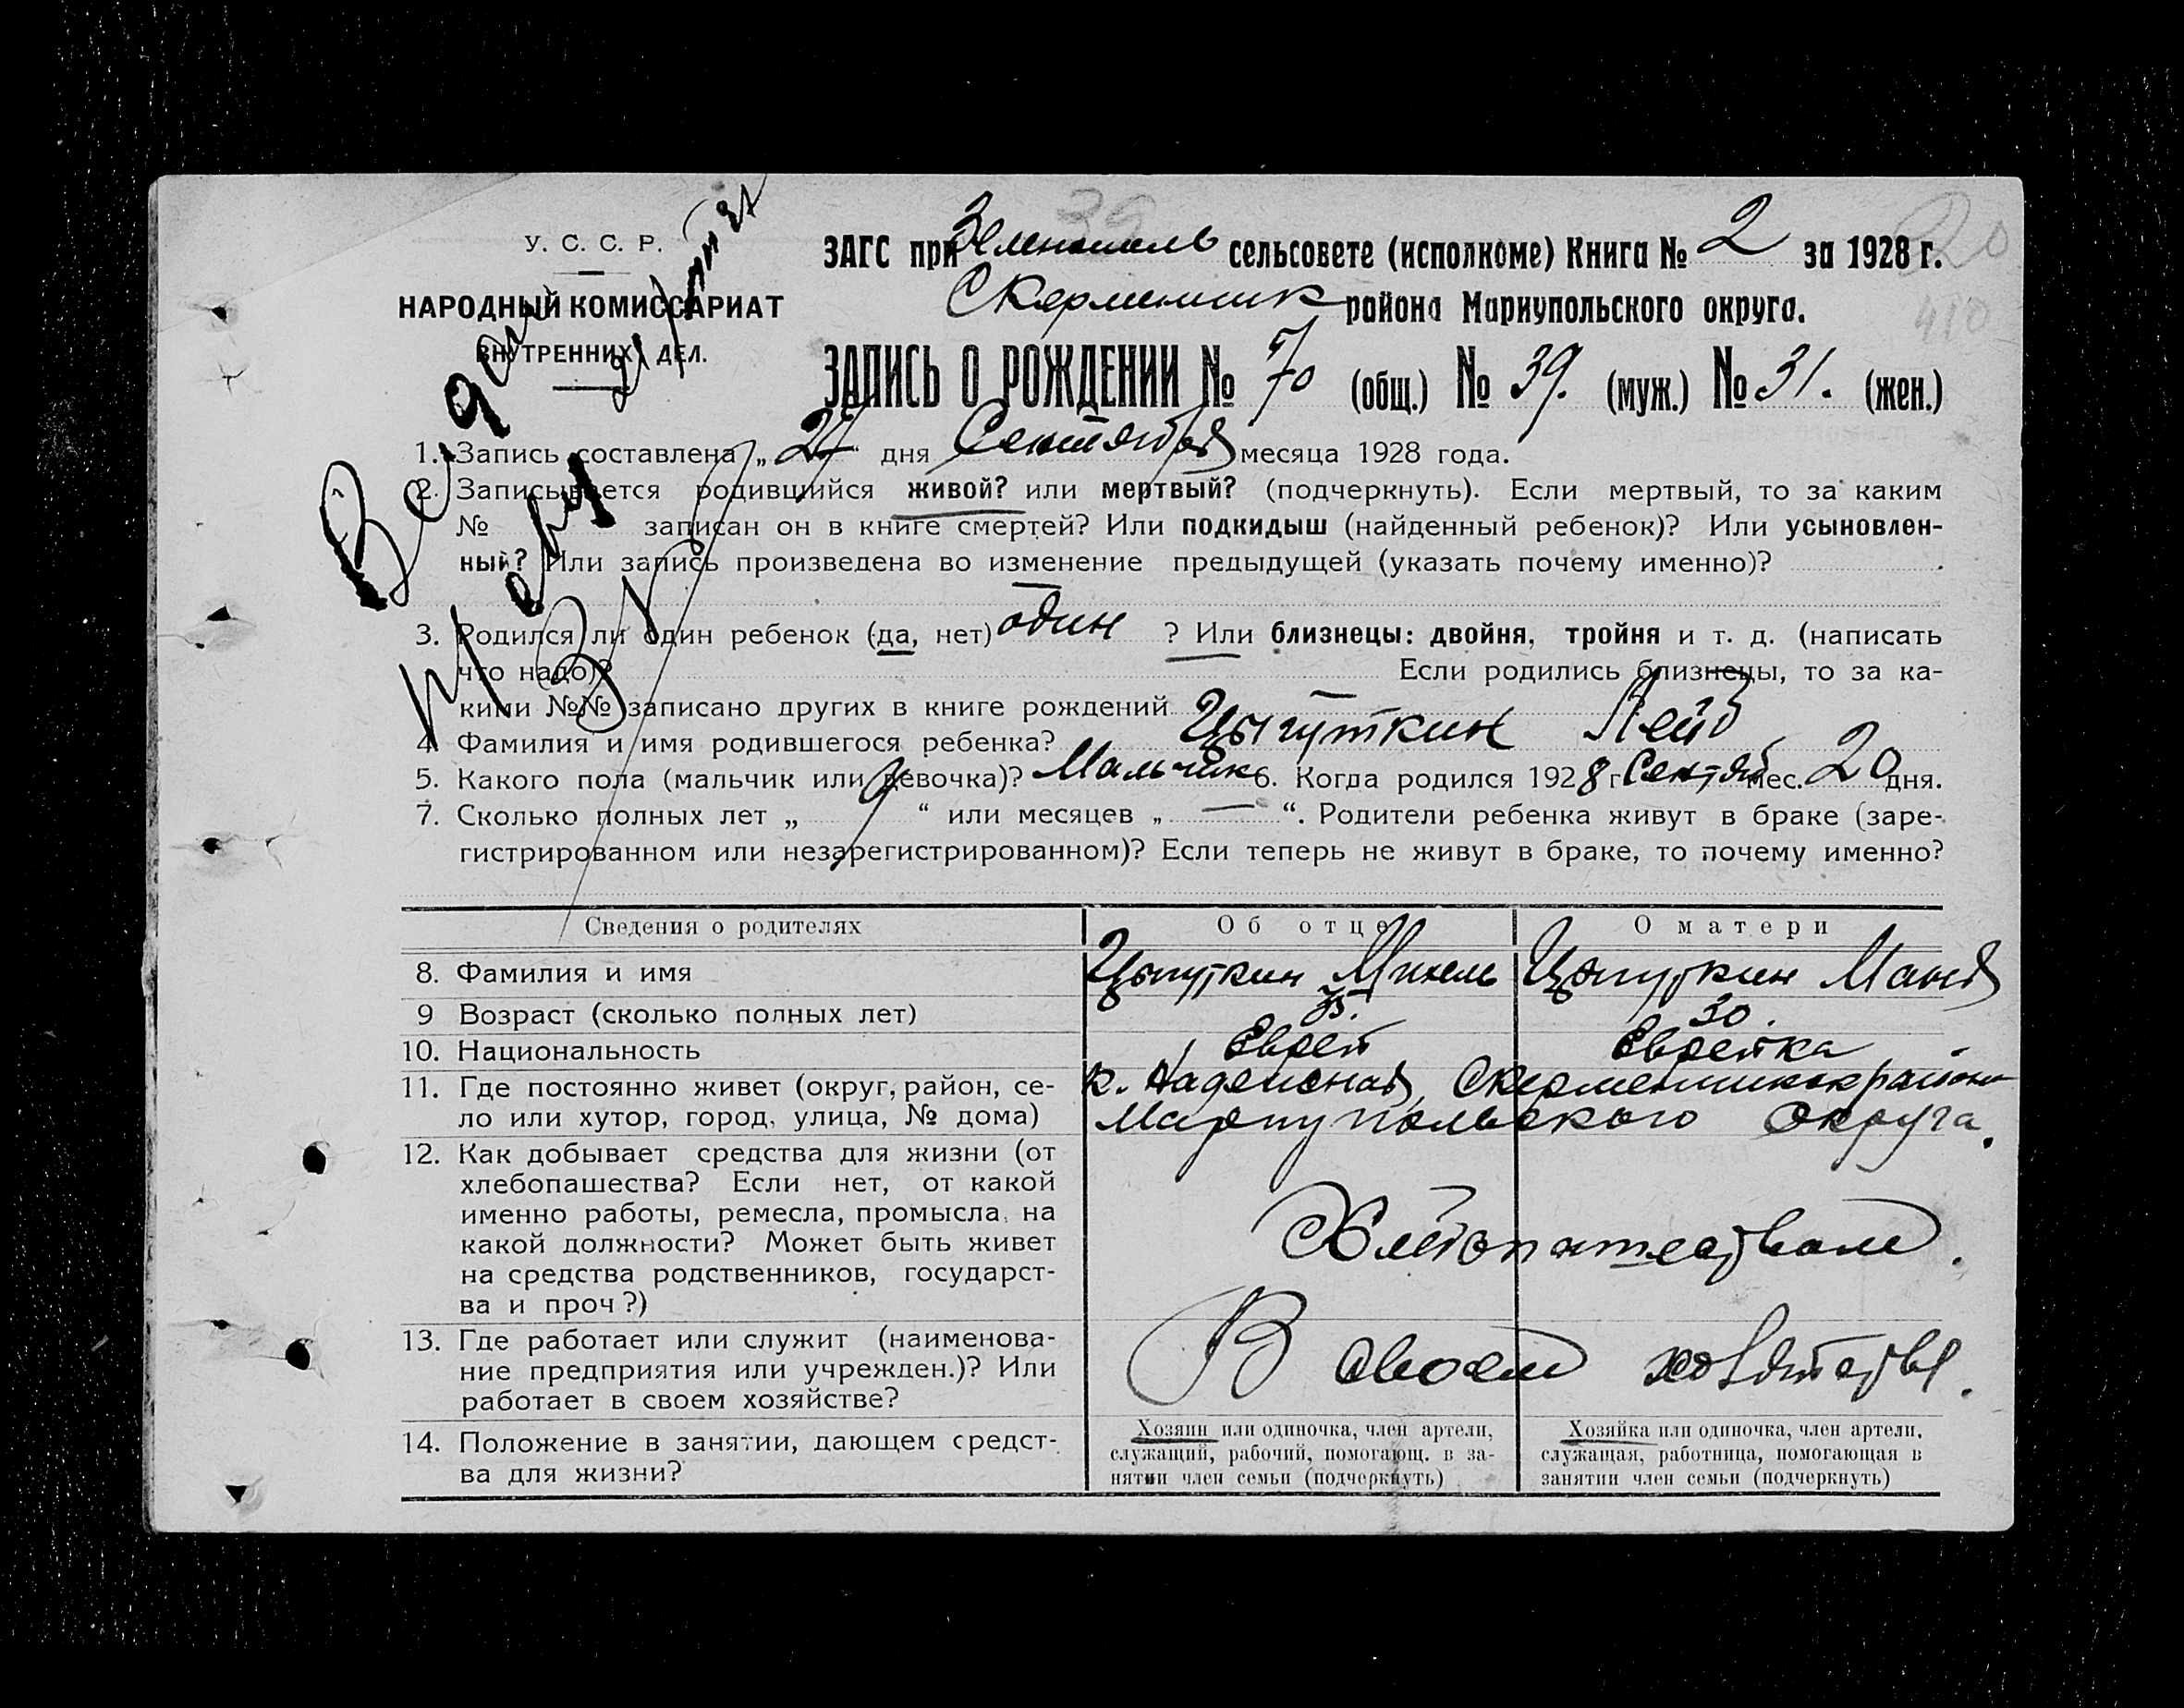 У. С. С. Р.
НАРОДНЫЙ КОМИССАРИАТ
ВНУТРЕННИХ ДЕЛ.
ЗАГС при Зеленополь сельсовете (исполкоме) Книга № 2 за 1928 г.
района Мариупольского округа.
ЗАПИСЬ О РОЖДЕНИИ № 70 (общ.) № 39. (муж.) № 31. (жен.)
1. Запись составлена „ 24 “ дня Сентября месяца 1928 года.
2. Записывается родившийся живой? или мертвый? (подчеркнуть). Если мертвый, то за каким
№ записан он в книге смертей? Или подкидыш (найденный ребенок)? Или усыновлен-
ный? Или запись произведена во изменение предыдущей (указать почему именно)?
3. Родился ли один ребенок (да, нет) один ? Или близнецы: двойня, тройня и т. д. (написать
что надо)? Если родились близнецы, то за ка-
кими №№ записано других в книге рождений —
4. Фамилия и имя родившегося ребенка? Цыгуткин Лейб
5. Какого пола (мальчик или девочка)? Мальчик 6. Когда родился 1928 г. Сентяб мес. 20 дня.
7. Сколько полных лет „ “ или месяцев „ — “. Родители ребенка живут в браке (заре-
гистрированном или незарегистрированном)? Если теперь не живут в браке, то почему именно?
Сведения о родителях Об отце О матери
8. Фамилия и имя Цыгуткин Михель Цыгуткин Маня
9 Возраст (сколько полных лет) 35. 30.
10. Национальность Еврей Еврейка
11. Где постоянно живет (округ, район, се- к. Надежная,
ло или хутор, город, улица, № дома) Мариупольского Округа.
12. Как добывает средства для жизни (от
хлебопашества? Если нет, от какой
именно работы, ремесла, промысла, на
какой должности? Может быть живет
на средства родственников, государст-
ва и проч?)
Хлебопашеством.
13. Где работает или служит (наименова-
ние предприятия или учрежден.)? Или
работает в своем хозяйстве?
В своем хозяйстве.
14. Положение в занятии, дающем средст-
ва для жизни?
Хозяин или одиночка, член артели,
служащий, рабочий, помогающ. в за-
нятии член семьи (подчеркнуть)
Хозяйка или одиночка, член артели,
служащая, работница, помогающая в
занятии член семьи (подчеркнуть)